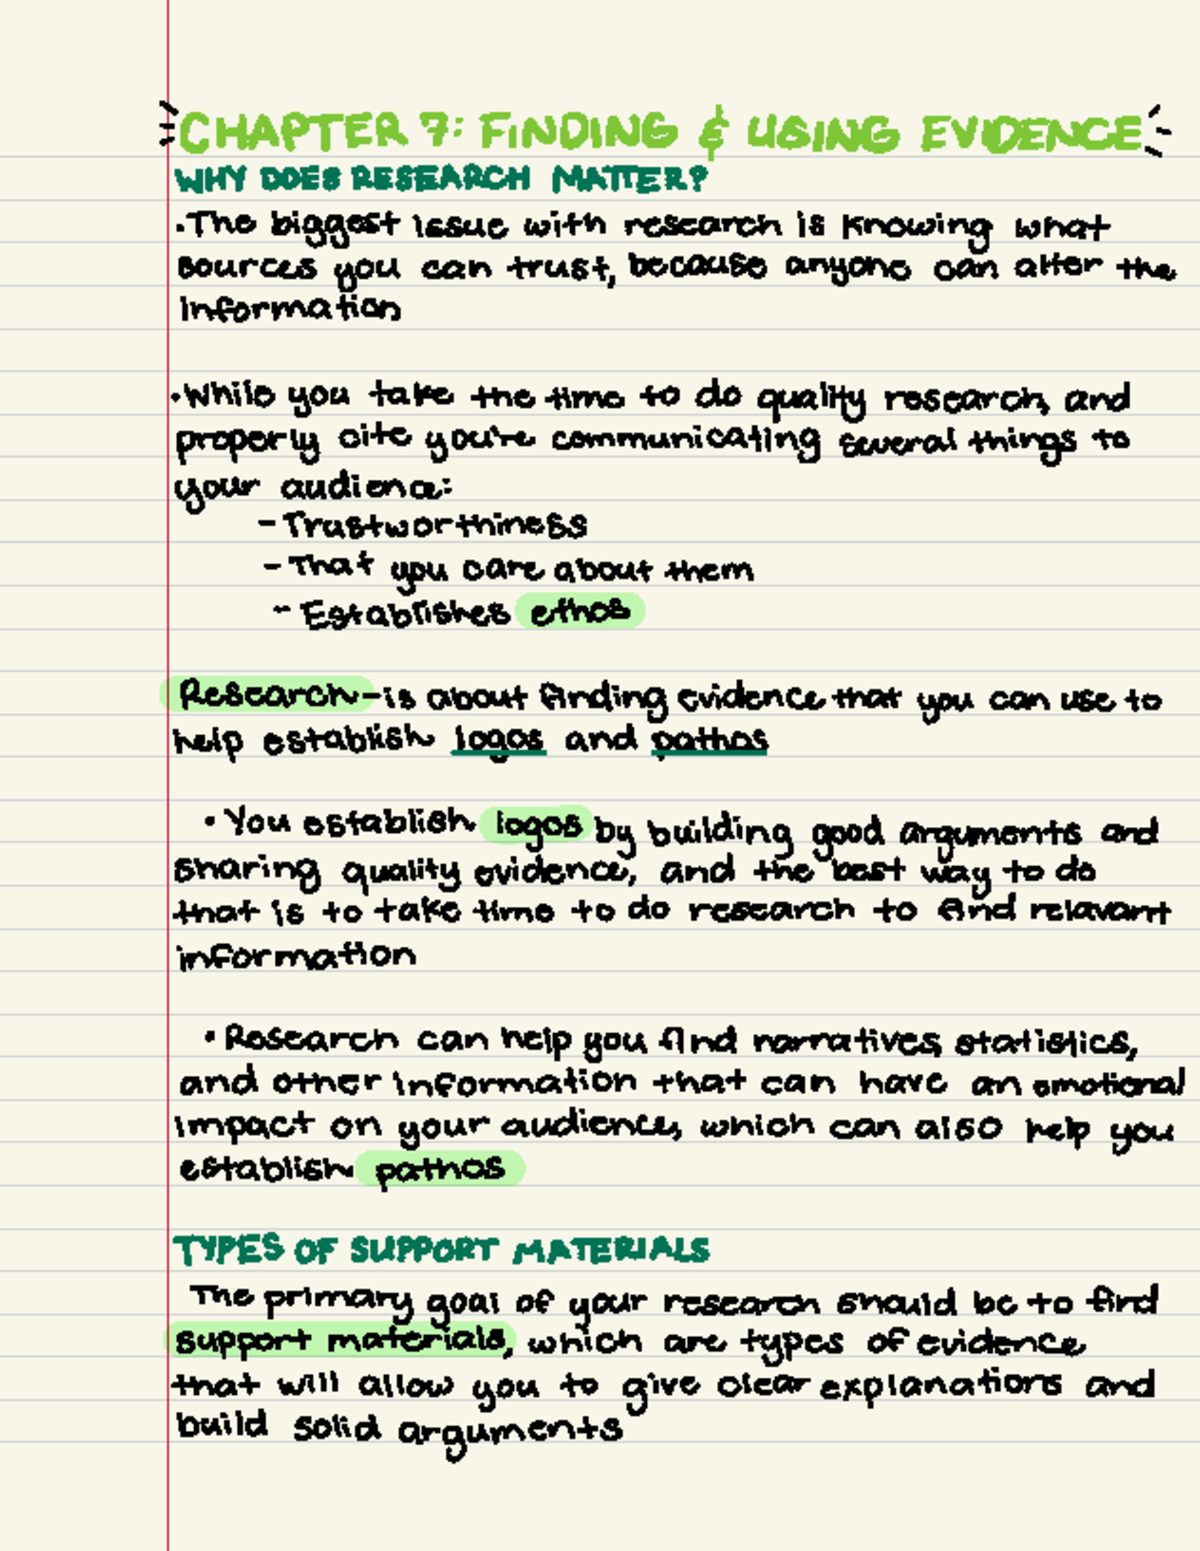 CHAPTER 7: FINDING & USING EVIDENCE
WHY DOES RESEARCH MATTER?
•The biggest issue with research is knowing what
sources you can trust, because anyone can alter the
information
•While you take the time to do quality research, and
properly cite you're communicating several things to
your audience:
- Trustworthiness
- That you care about them
- Establishes ethos
Research - is about finding evidence that you can use to
help establish logos and pathos
• You establish logos by building good arguments and
sharing quality evidence, and the best way to do
that is to take time to do research to find relavant
information
• Research can help you find narratives, statistics,
and other information that can have an emotional
impact on your audience, which can also help you
establish pathos
TYPES OF SUPPORT MATERIALS
The primary goal of your research should be to find
support materials, which are types of evidence
that will allow you to give clear explanations and
build solid arguments